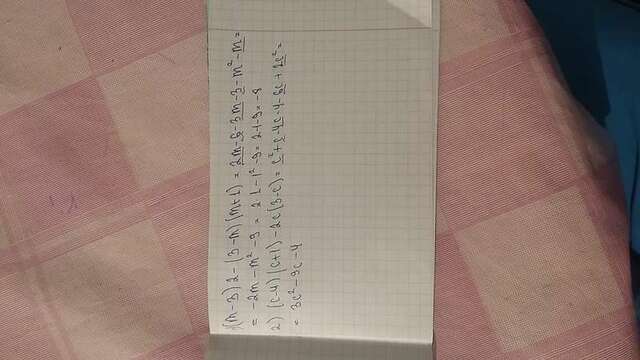 (m-3)2-(3-m)(m+1)=2m-6-3m-3-m²-m=
=-2m-m²-9=2·1-1²-9=2-1-9=-8
2) (c-4)(c+1)-2c(3-c)=c²+c-4c-4-6c+2c²=
=3c²-9c-4